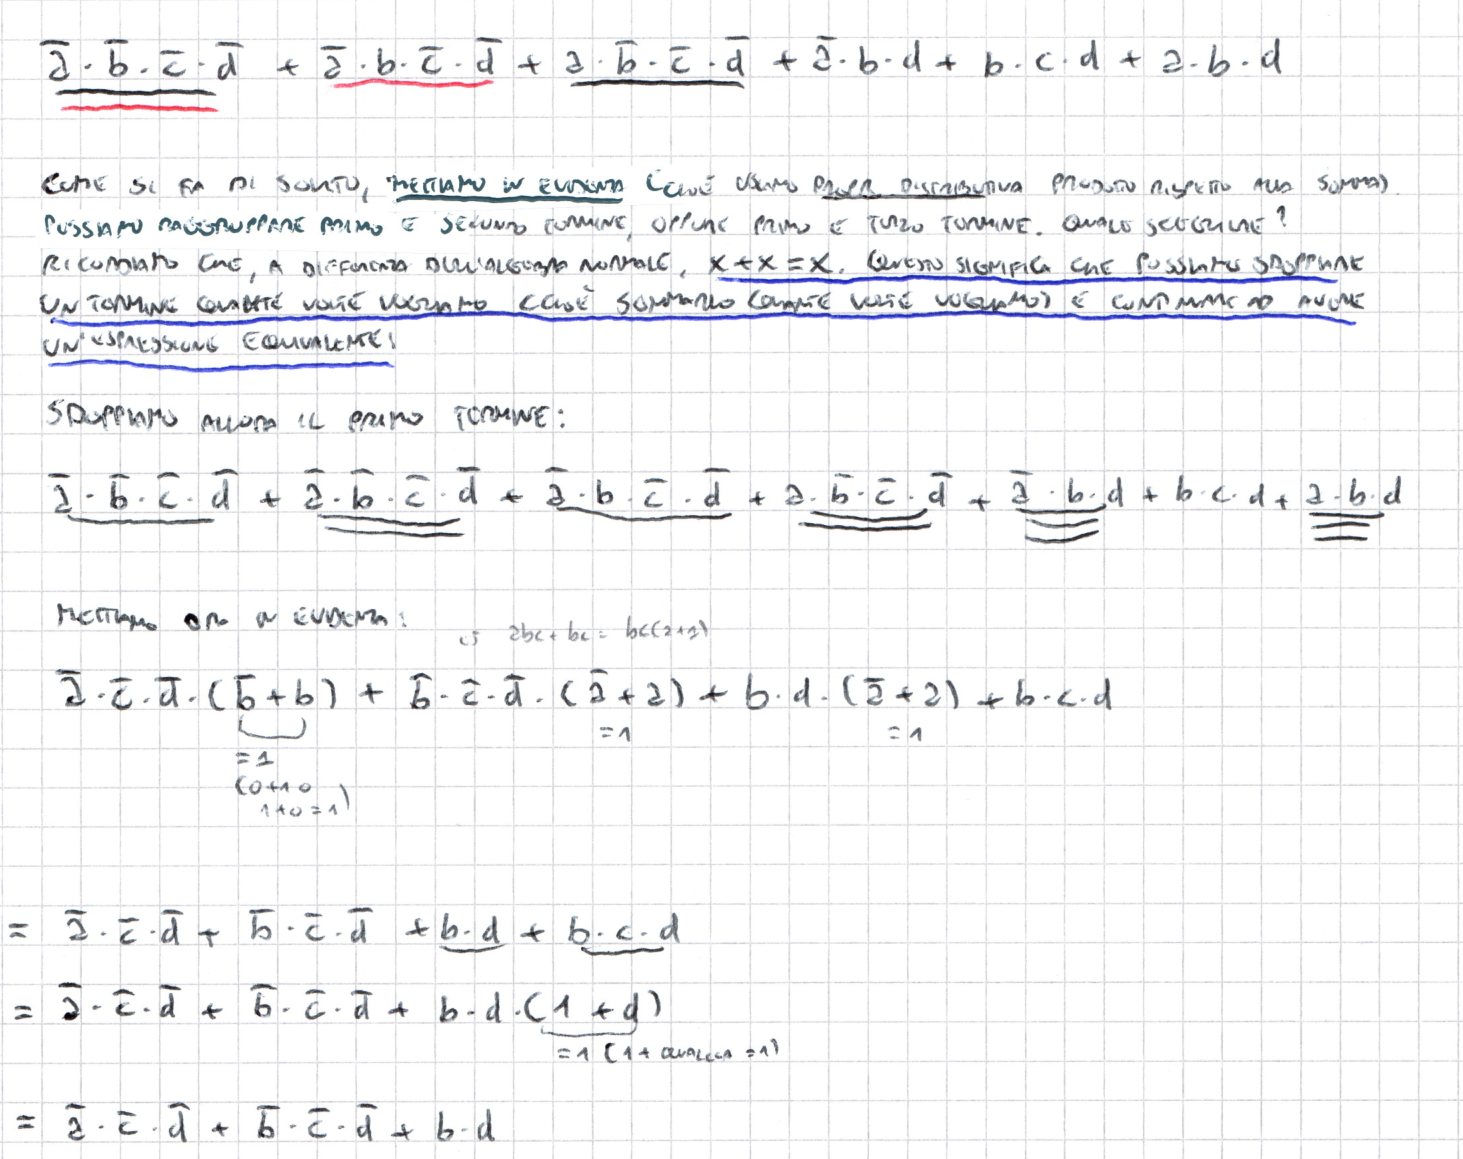 a̅·b̅·c̅·d̅ + a̅·b·c̅·d̅ + a·b̅·c̅·d̅ + a̅·b·d + b·c·d + a·b·d
COME SI FA DI SOLITO, METTIAMO IN EVIDENZA (CIOÈ USIAMO PROPR. DISTRIBUTIVA PRODOTTO RISPETTO ALLA SOMMA)
POSSIAMO RAGGRUPPARE PRIMO E SECONDO TERMINE, OPPURE PRIMO E TERZO TERMINE. QUALE SCEGLIERE?
RICORDIAMO CHE, A DIFFERENZA DELL'ALGEBRA NORMALE, X+X=X. QUESTO SIGNIFICA CHE POSSIAMO SDOPPIARE
UN TERMINE QUANTE VOLTE VOGLIAMO (CIOÈ SOMMARLO QUANTE VOLTE VOGLIAMO) E CONTINUARE AD AVERE
UN'ESPRESSIONE EQUIVALENTE!
SDOPPIAMO ALLORA IL PRIMO TERMINE:
a̅·b̅·c̅·d̅ + a̅·b̅·c̅·d̅ + a̅·b·c̅·d̅ + a·b̅·c̅·d̅ + a̅·b·d + b·c·d + a·b·d
METTIAMO ORA IN EVIDENZA:
abc + bc = bc(a+1)
a̅·c̅·d̅·(b̅+b) + b̅·c̅·d̅·(a̅+a) + b·d·(a̅+a) + b·c·d
=1 =1
=1
(0+1 o
1+0=1)
= a̅·c̅·d̅ + b̅·c̅·d̅ + b·d + b·c·d
= a̅·c̅·d̅ + b̅·c̅·d̅ + b·d·(1+d)
=1 (1+ QUALCOSA =1)
= a̅·c̅·d̅ + b̅·c̅·d̅ + b·d